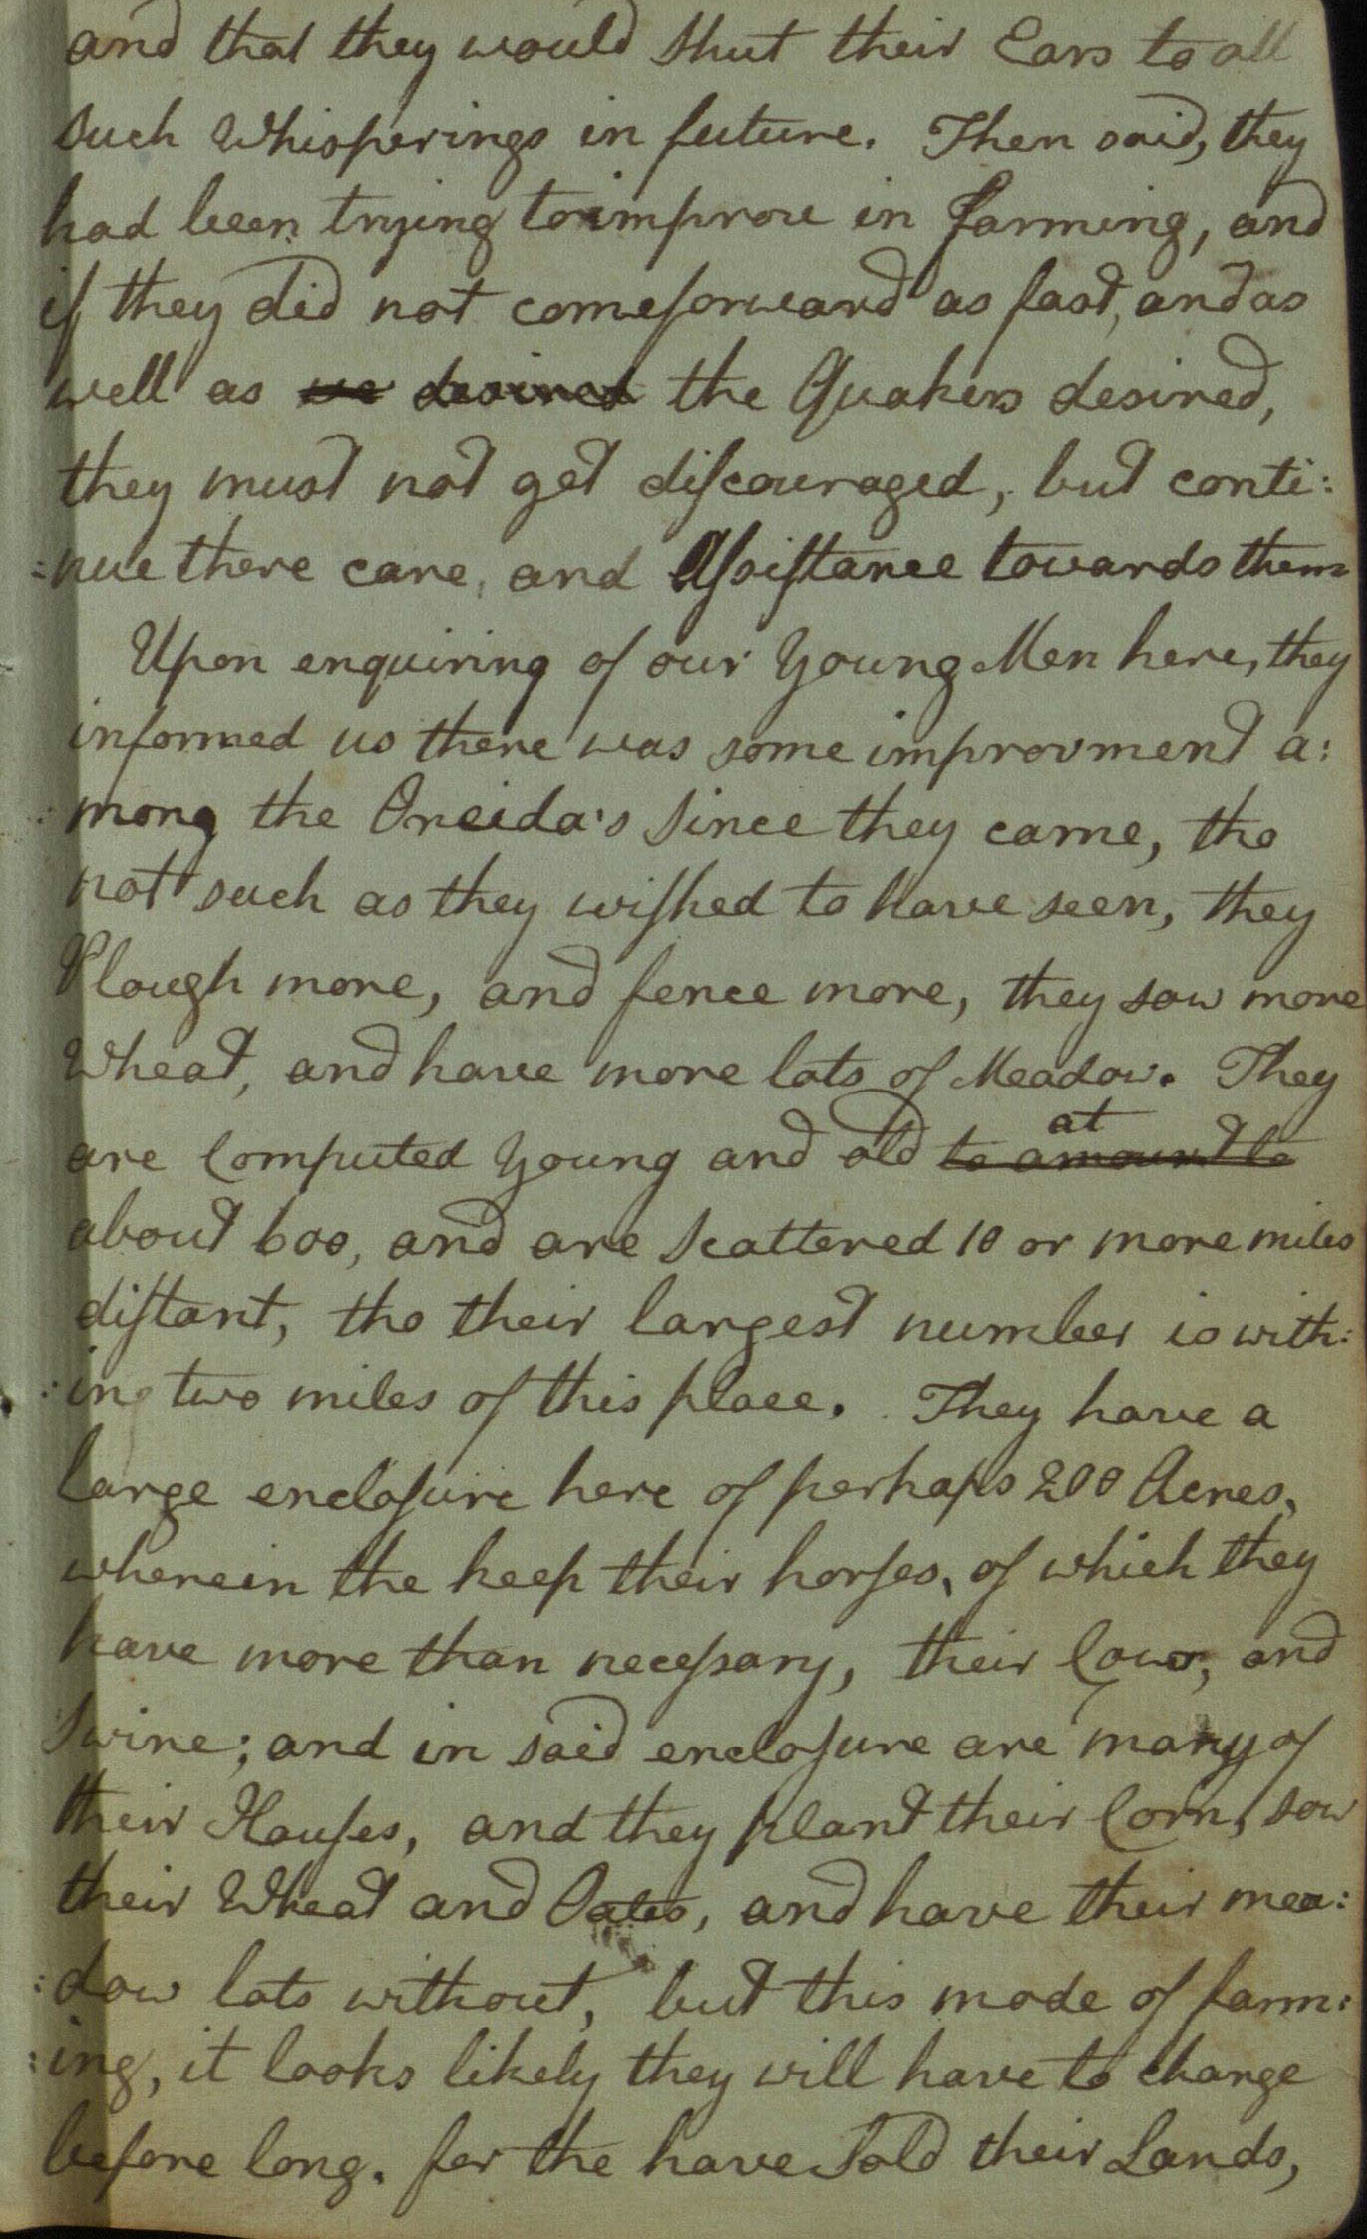 and that they would shut their Ears to all
such Whisperings in future. Then said, they
had been trying to improve in farming, and
if they did not come forward as fast, and as
well as we desired the Quakers desired,
they must not get discouraged, but conti:
:nue there care, and Assistance towards them
Upon enquiring of our Young Men here, they
informed us there was some improvment a:
:mong the Oneida's since they came, tho
not such as they wished to have seen, they
Plough more, and fence more, they sow more
Wheat, and have more lots of Meadow. They
at
are Computed Young and old to amount to
about 600, and are scattered 10 or more miles
distant, tho their largest number is with:
:in two miles of this place. They have a
large enclosure here of perhaps 200 Acres,
wherein the keep their horses, of which they
have more than necessary, their Cows, and
Swine; and in said enclosure are many of
their Houses, and they plant their Corn, sow
their Wheat and Oates, and have their mea:
:dow lots without, but this mode of farm:
:ing, it looks likely they will have to change
before long. for the have Sold their Lands,